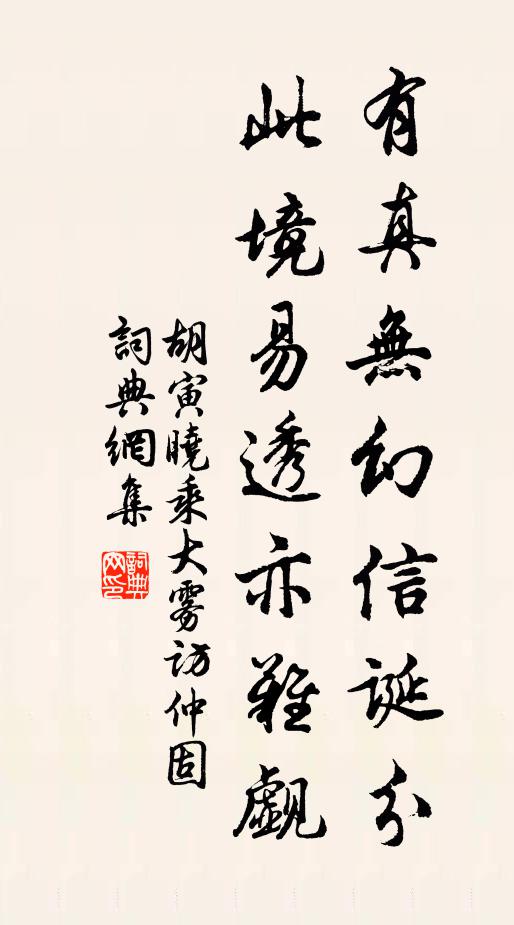 有真無幻信誕分
此境易透亦難觑
胡寅曉乘大雾訪仲固
詞典網集
詞典网印